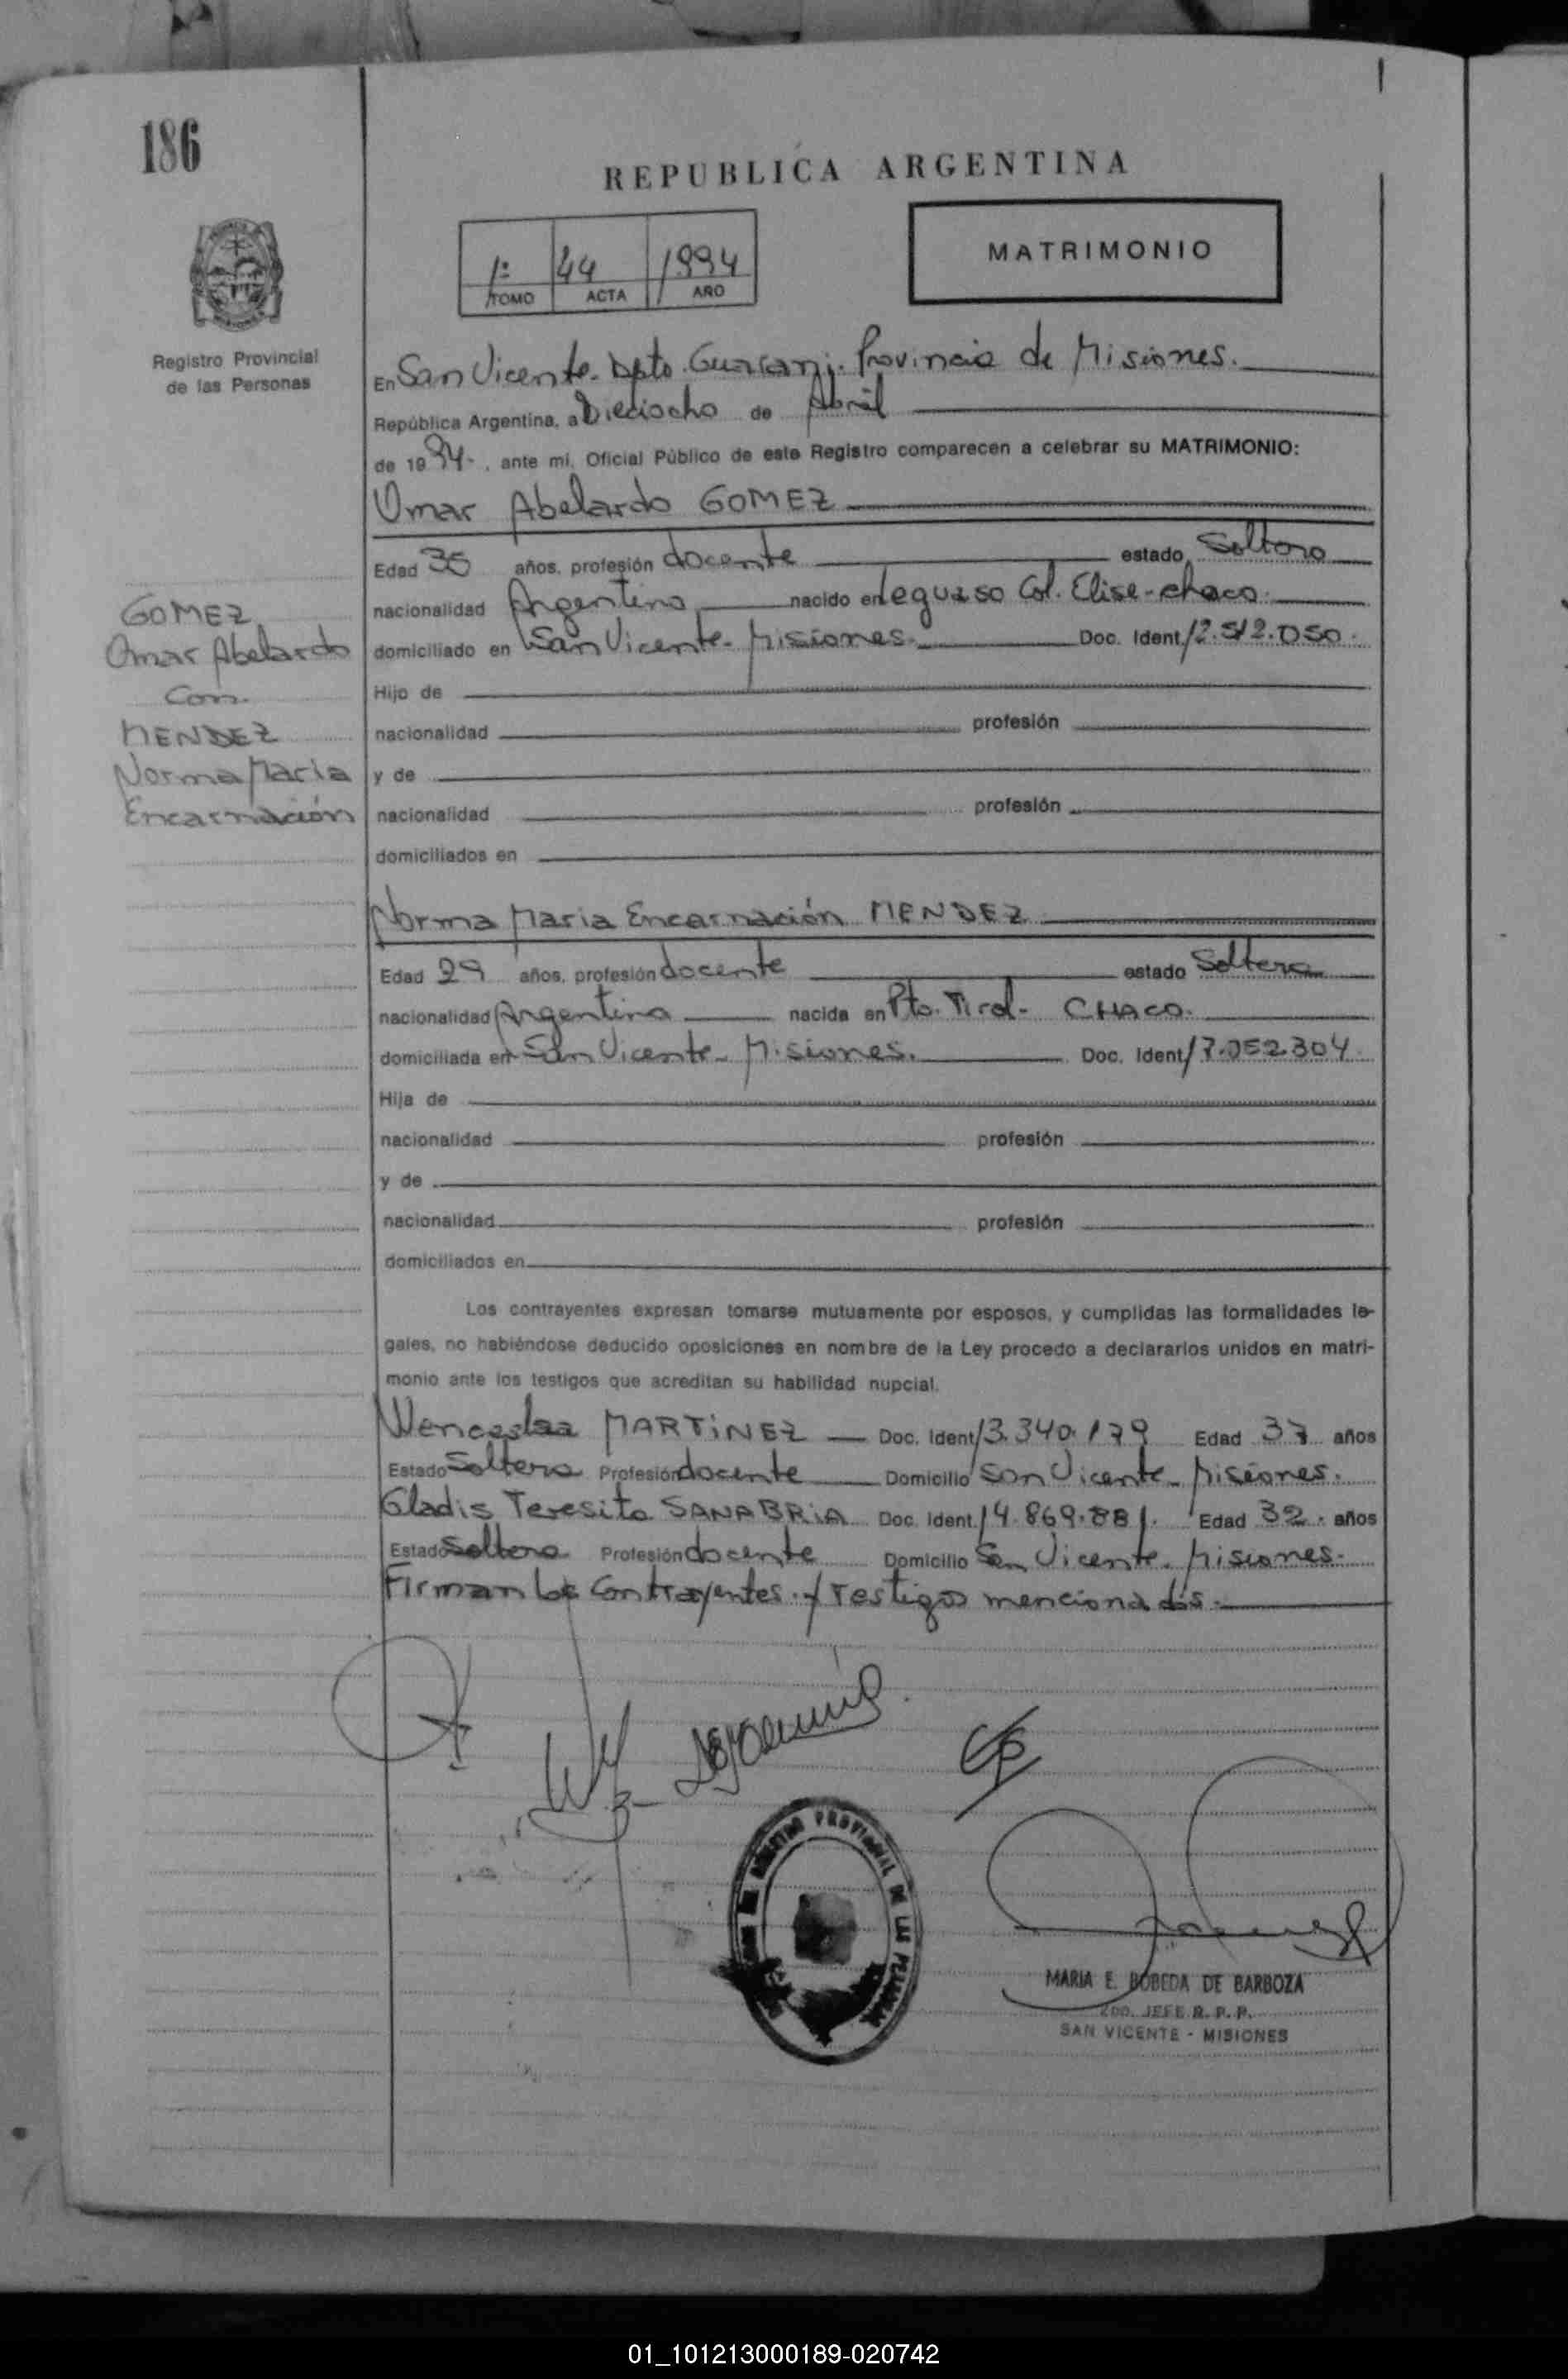 186
REPUBLICA ARGENTINA
1º 44 1994
TOMO ACTA AÑO
MATRIMONIO
Registro Provincial
de las Personas
En San Vicente. Dpto. Guarani. Provincia de Misiones.
República Argentina, a Dieciocho de Abril
de 1994-, ante mi, Oficial Público de este Registro comparecen a celebrar su MATRIMONIO:
Omar Abelardo GOMEZ
Edad 35 años, profesión docente estado Soltero
nacionalidad Argentino nacido en Col. Elisa-chaco.
domiciliado en San Vicente- Misiones. Doc. Ident. 12.512.050.
Hijo de
nacionalidad profesión
y de
nacionalidad profesión
domiciliados en
GOMEZ
Omar Abelardo
Con
MENDEZ
Norma Maria
Encarnación
Norma Maria Encarnación MENDEZ
Edad 29 años, profesión docente estado Soltera
nacionalidad Argentina nacida en Pto. Tirol- CHACO.
domiciliada en San Vicente- Misiones. Doc. Ident. 17.052.304.
Hija de
nacionalidad profesión
y de
nacionalidad profesión
domiciliados en
Los contrayentes expresan tomarse mutuamente por esposos, y cumplidas las formalidades le-
gales, no habiéndose deducido oposiciones en nombre de la Ley procedo a declararlos unidos en matri-
monio ante los testigos que acreditan su habilidad nupcial.
Wenceslaa MARTINEZ Doc. Ident. 13.340.179 Edad 37 años
Estado Soltera Profesión docente Domicilio San Vicente- Misiones.
Gladis Teresita SANABRIA Doc. Ident. 14.869.881. Edad 32. años
Estado Soltera Profesión docente Domicilio San Vicente- Misiones.
Firman los Contrayentes y Testigos mencionados.
REGISTRO PROVINCIAL DE LAS PERSONAS
MARIA E. BOBEDA DE BARBOZA
2DO. JEFE R. P. P.
SAN VICENTE - MISIONES
01_101213000189-020742